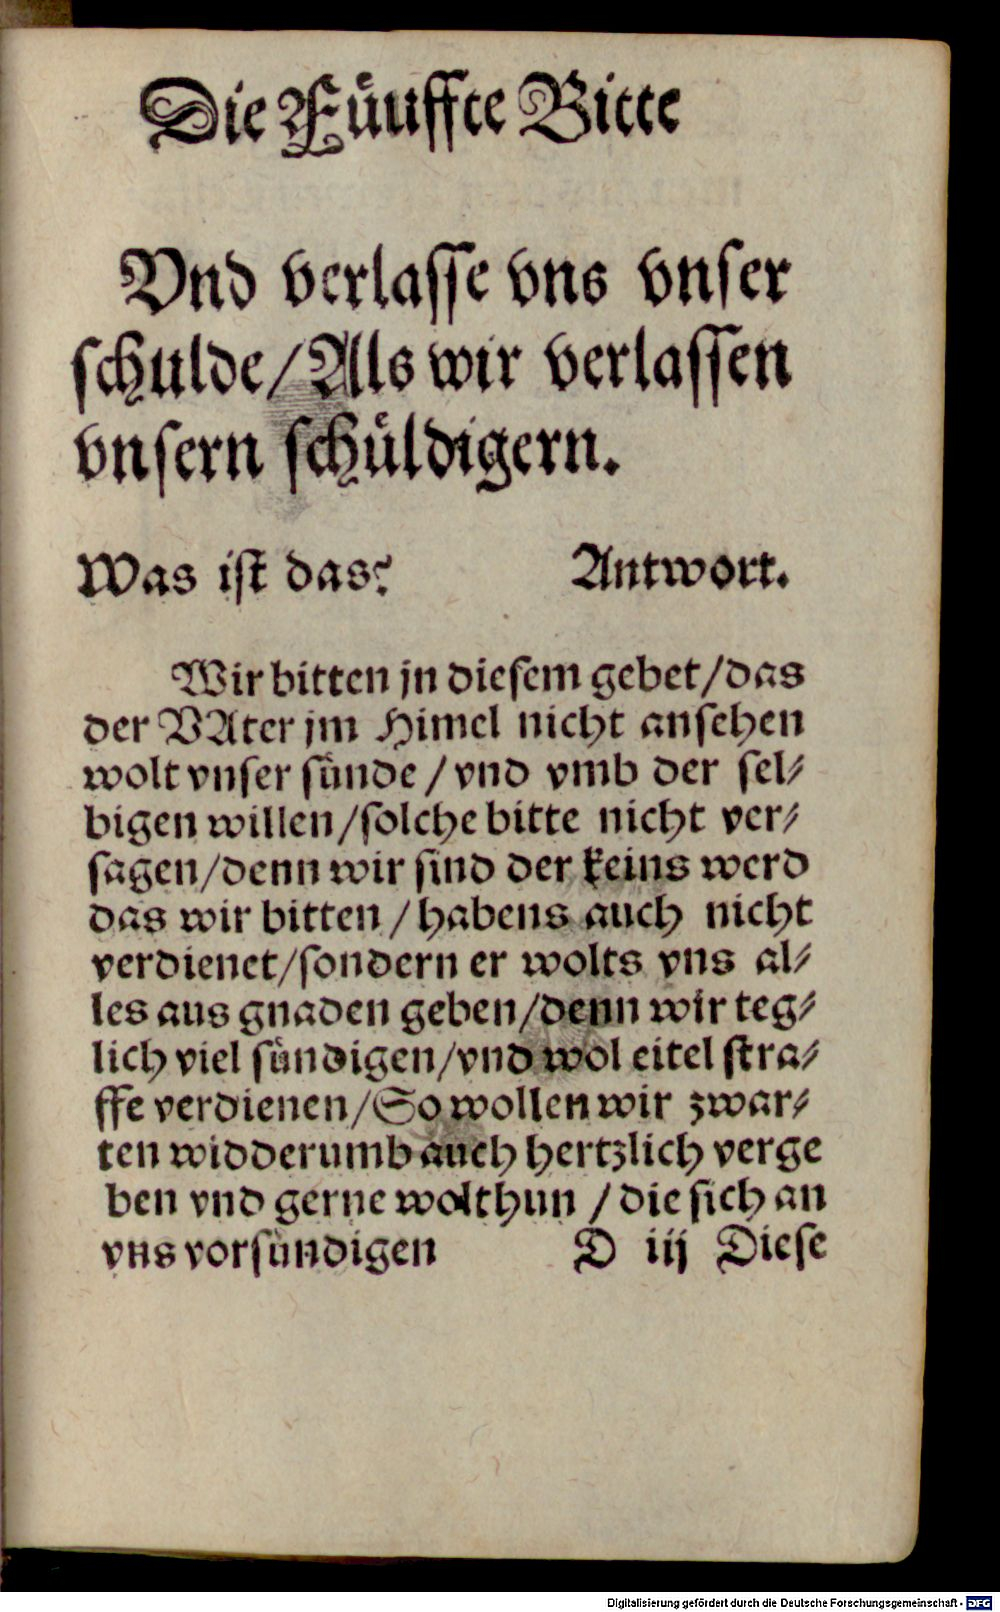 Die Füuffte Bitte
Vnd verlasse vns vnser
schulde/Als wir verlassen
vnsern schüldigern.
Was ist das? Antwort.
Wir bitten jn diesem gebet/das
der VAter jm Himel nicht ansehen
wolt vnser sünde / vnd vmb der sel-
bigen willen/solche bitte nicht ver-
sagen/denn wir sind der keins werd
das wir bitten / habens auch nicht
verdienet/sondern er wolts vns al-
les aus gnaden geben/denn wir teg-
lich viel sündigen/vnd wol eitel stra-
ffe verdienen/So wollen wir zwar-
ten widderumb auch hertzlich verge
ben vnd gerne wolthun / die sich an
vns vorsündigen D iij Diese
Digitalisierung gefördert durch die Deutsche Forschungsgemeinschaft - DFG